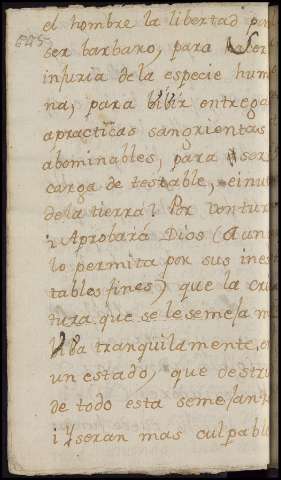 el hombre la libertad
ser barbaro, para ser
injuria de la especie hum
na, para bibir entrega
a practicas sangrientas
abominables, para ser
carga detestable, e inu
de la tierra? Por ventur
i Aprobará Dios (aun
lo permita por sus ines
tables fines) que la cria
tura que se le semeja m
biba tranquilamente, e
un estado, que destru
de todo esta semejan
i y seran mas culpable